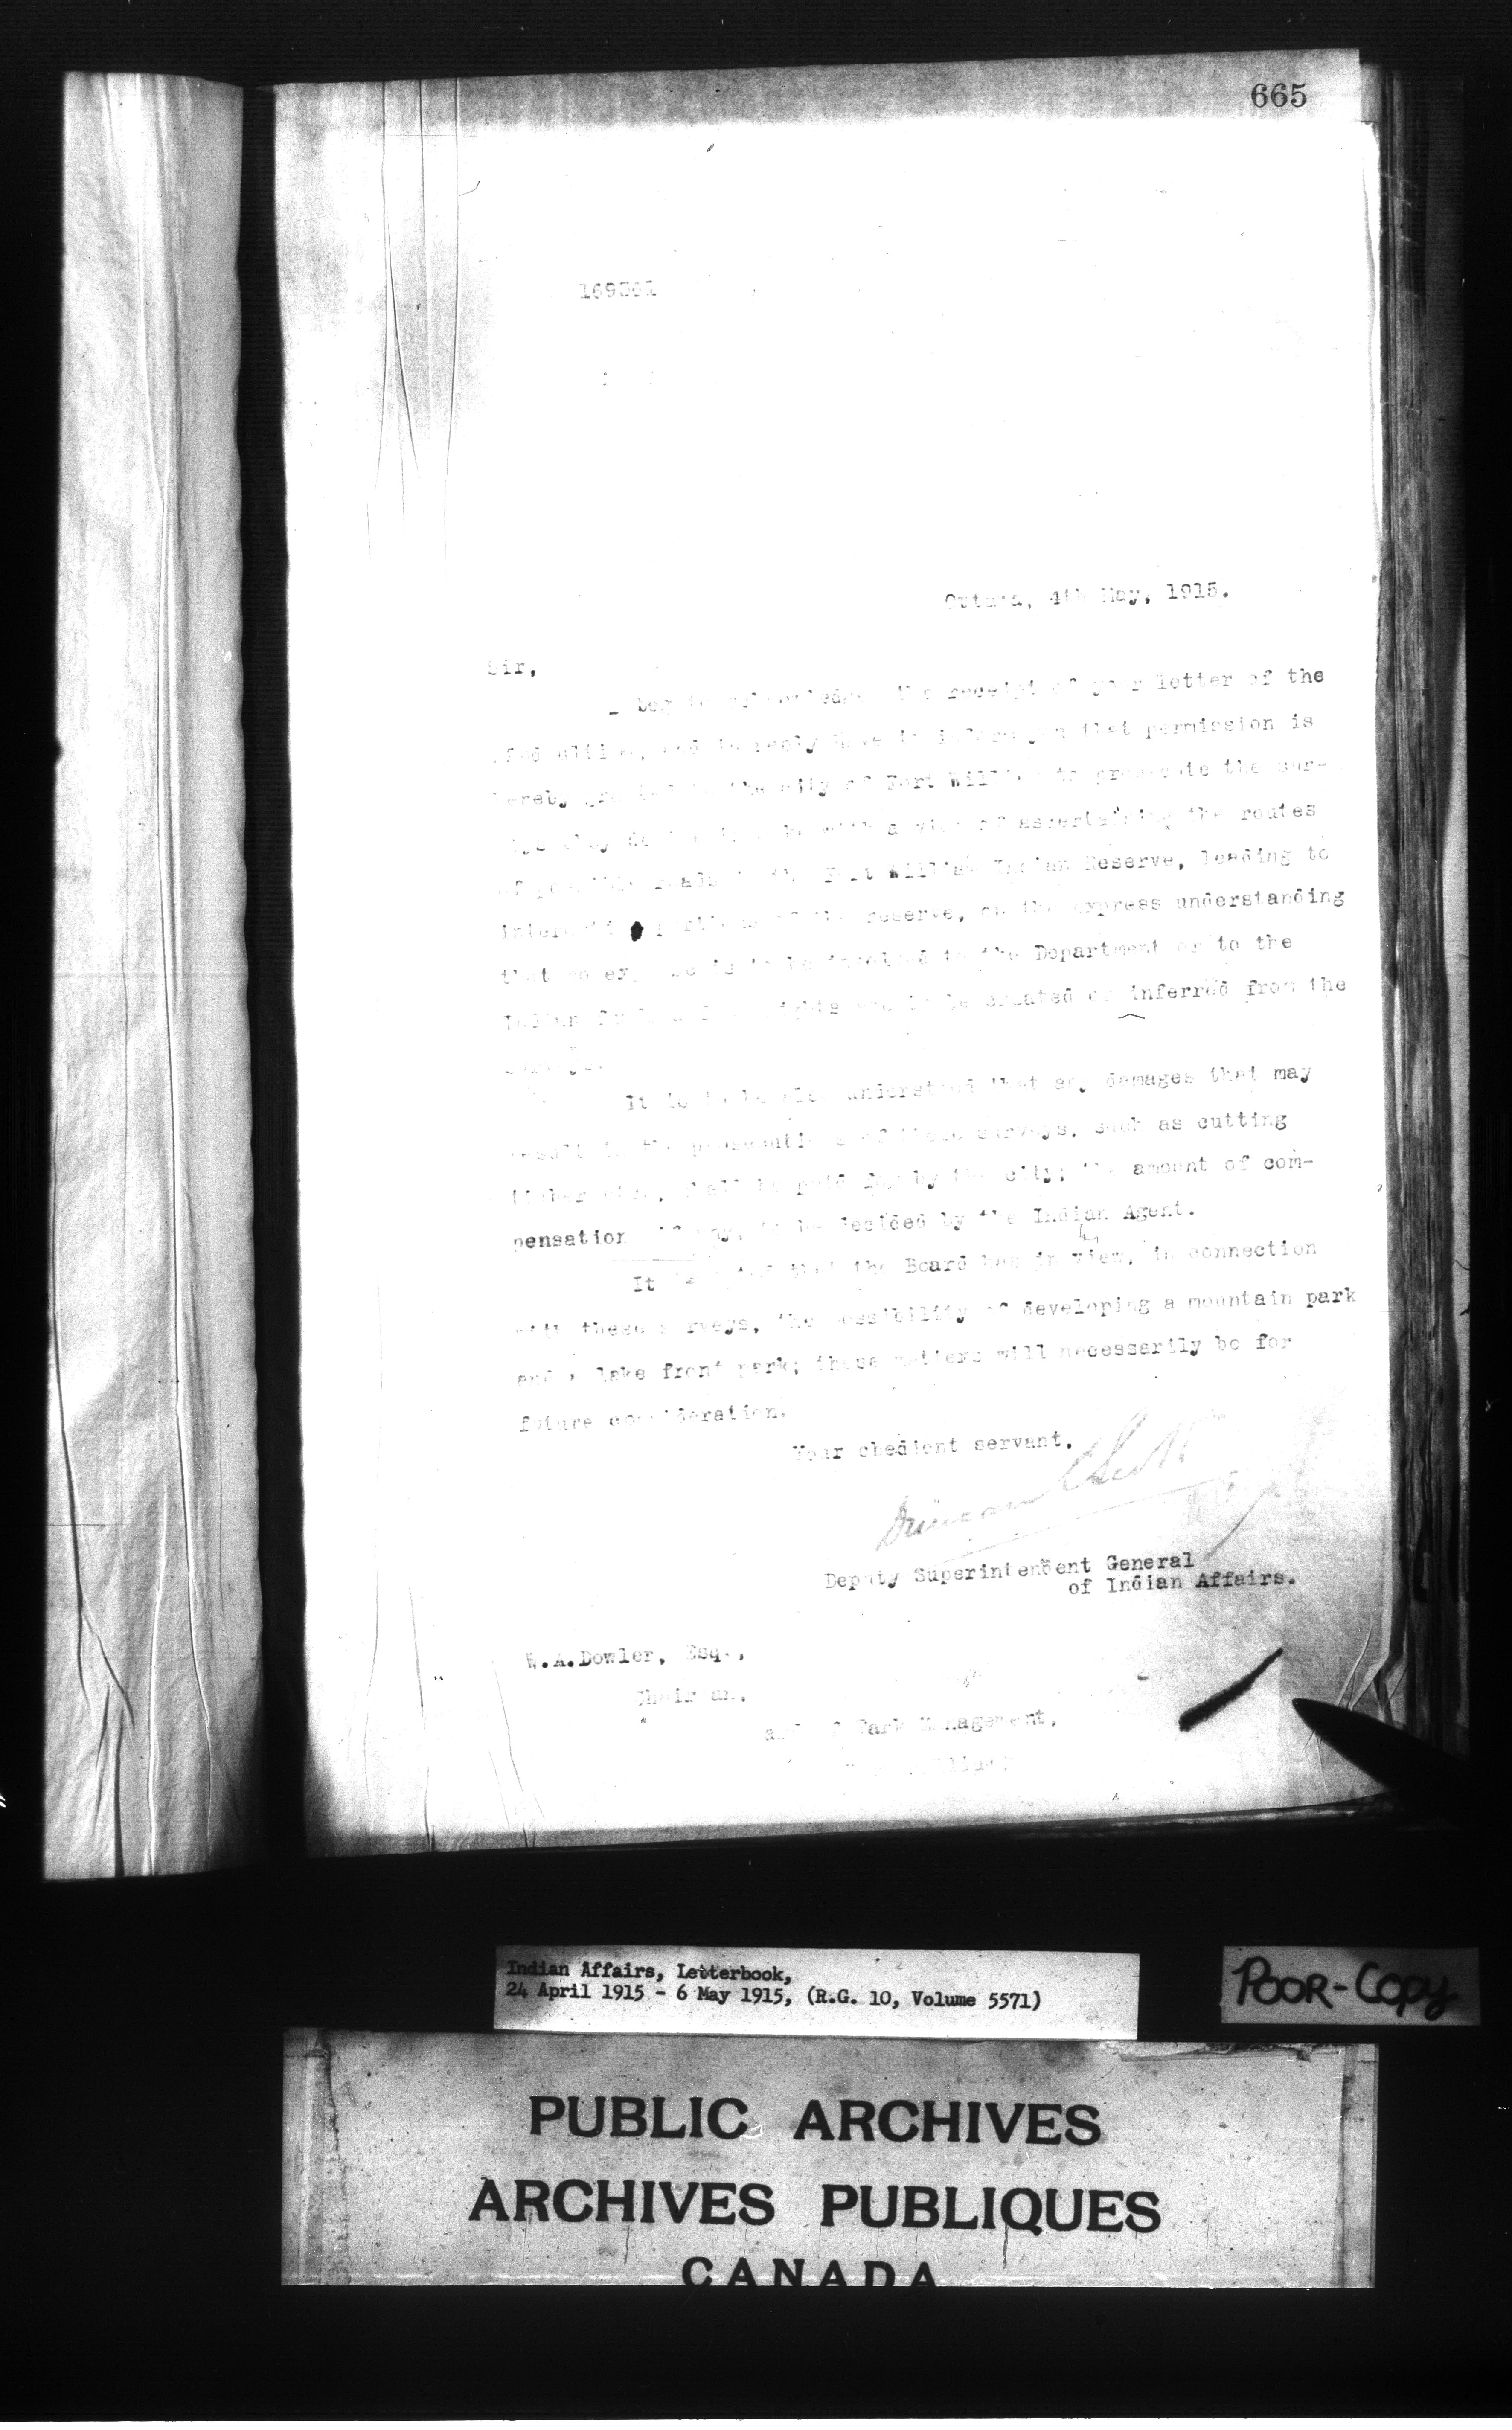 665
Ottawa, 4th May, 1915.
Sir,
I beg to acknowledge the receipt of your letter of the
ultimo, and in reply have to inform you that permission is
hereby granted to the city of Fort William to prosecute the sur-
they with a view of ascertaining the routes
of possible roads the Fort William Indian Reserve, leading to
portions of the reserve, on the express understanding
that no expense is to be involved to the Department or to the
Indian to be created or inferred from the
It is to be also understood that any damages that may
result in the prosecution of these surveys, such as cutting
timber etc., shall be paid for by the city; the amount of com-
pensation if any, to be decided by the Indian Agent.
It is noted that the Board has in view, in connection
with these surveys, the possibility of developing a mountain park
and a lake front park; these matters will necessarily be for
future consideration.
Your obedient servant,
Duncan C Scott
Deputy Superintendent General
of Indian Affairs.
W.A.Dowler, Esq.,
Chairman,
Park Management,
Indian Affairs, Letterbook,
24 April 1915 - 6 May 1915, (R.G. 10, Volume 5571)
POOR-COPY
PUBLIC ARCHIVES
ARCHIVES PUBLIQUES
CANADA